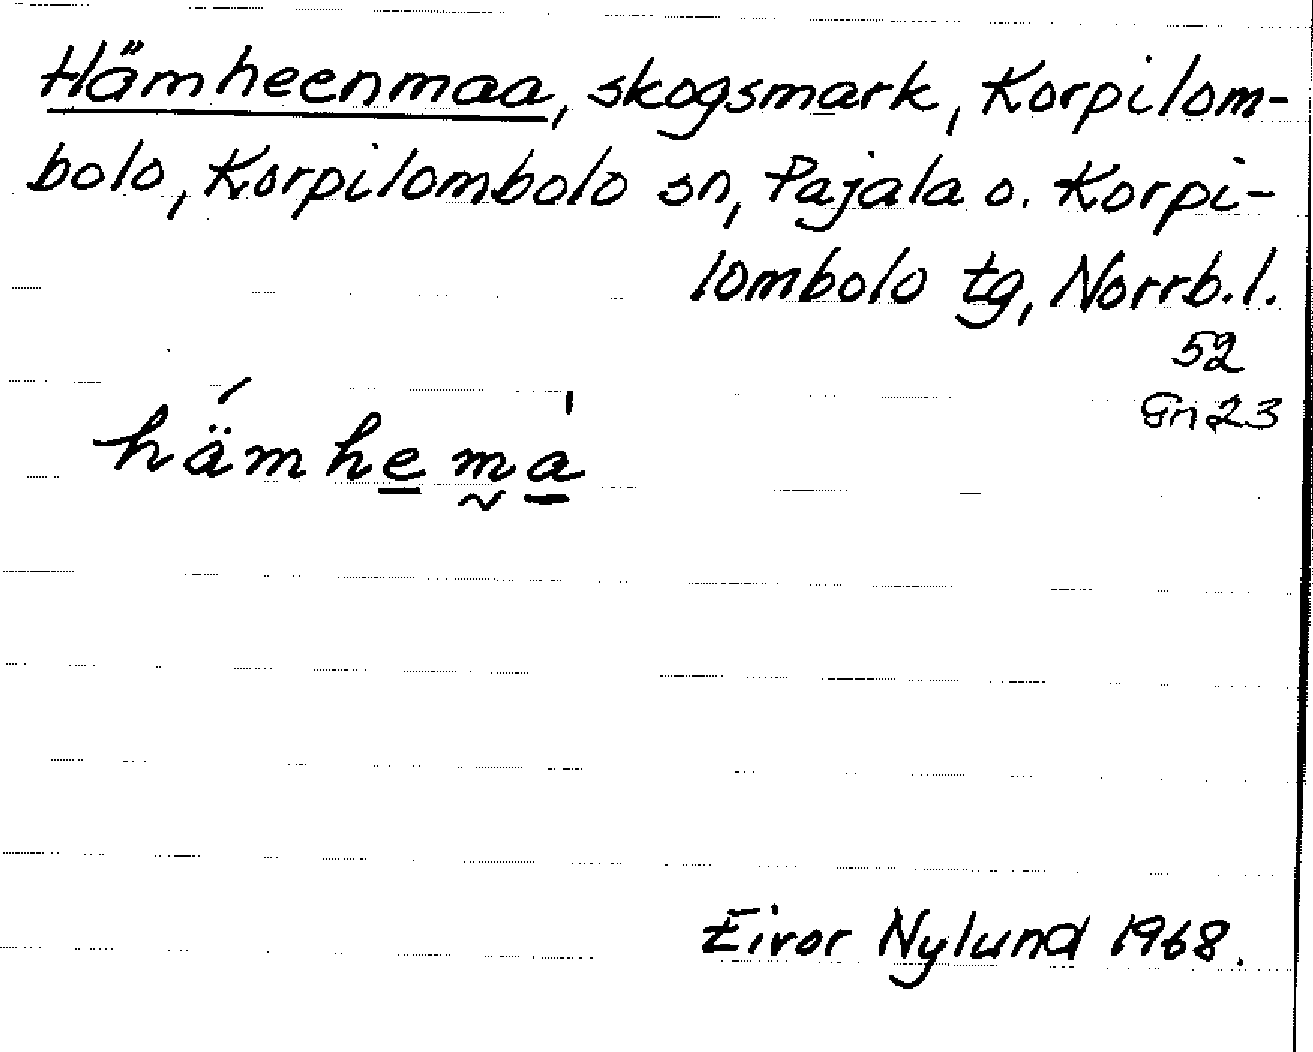 Hämheenmaa, skogsmark, Korpilom-
bolo, Korpilombolo sn, Pajala o. Korpi-
lombolo tg, Norrb.l.
52
Gn 23
hämhema
Eivor Nylund 1968.